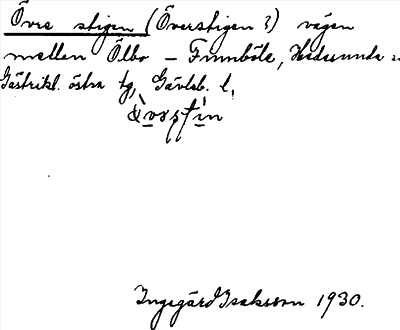 Övre stigen (Överstigen?) vägen
mellan Ölbo - Finnböle, Hedesunda s:n
Gästrikl. östra tg, Gävleb. l.
Ingegärd Isaksson 1930.